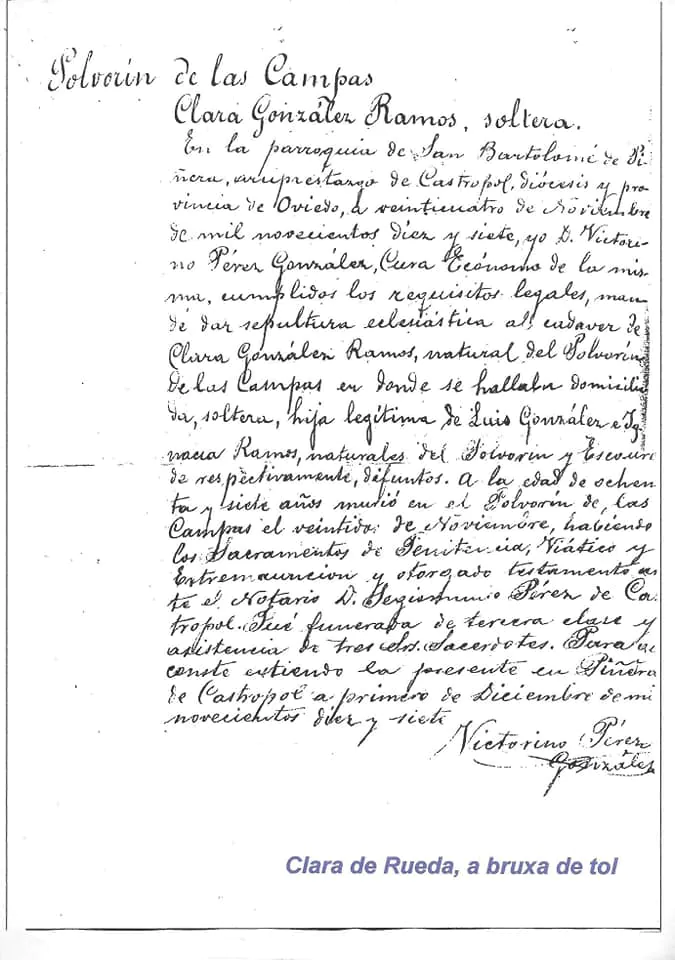 Polvorín de las Campas
Clara González Ramos, soltera.
En la parroquia de San Bartolomé de Pi-
ñera, arciprestazgo de Castropol, diócesis y pro-
vincia de Oviedo, a veinticuatro de Noviembre
de mil novecientos diez y siete, yo D. Victori-
no Pérez González, Cura Ecónomo de la mis-
ma, cumplidos los requisitos legales, man-
dé dar sepultura eclesiástica al cadaver de
Clara González Ramos, natural del Polvorín
de las Campas en donde se hallaba domicilia
da, soltera, hija legítima de Luis González e Ig-
nacia Ramos, naturales del Polvorín y
de respectivamente, difuntos. A la edad de ochen
ta y siete años murió en el Polvorín de las
Campas el veintidos de Noviembre, habiendo
los Sacramentos de Penitencia, Viático y
Extremaunción y otorgado testamento an
te el Notario D. Segismundo Pérez de Cas
tropol. Fué funerada de tercera clase y
asistencia de tres Srs. Sacerdotes. Para
conste extiendo la presente en Piñera
de Castropol a primero de Diciembre de mi
novecientos diez y siete
Victorino Pérez
González
Clara de Rueda, a bruxa de tol